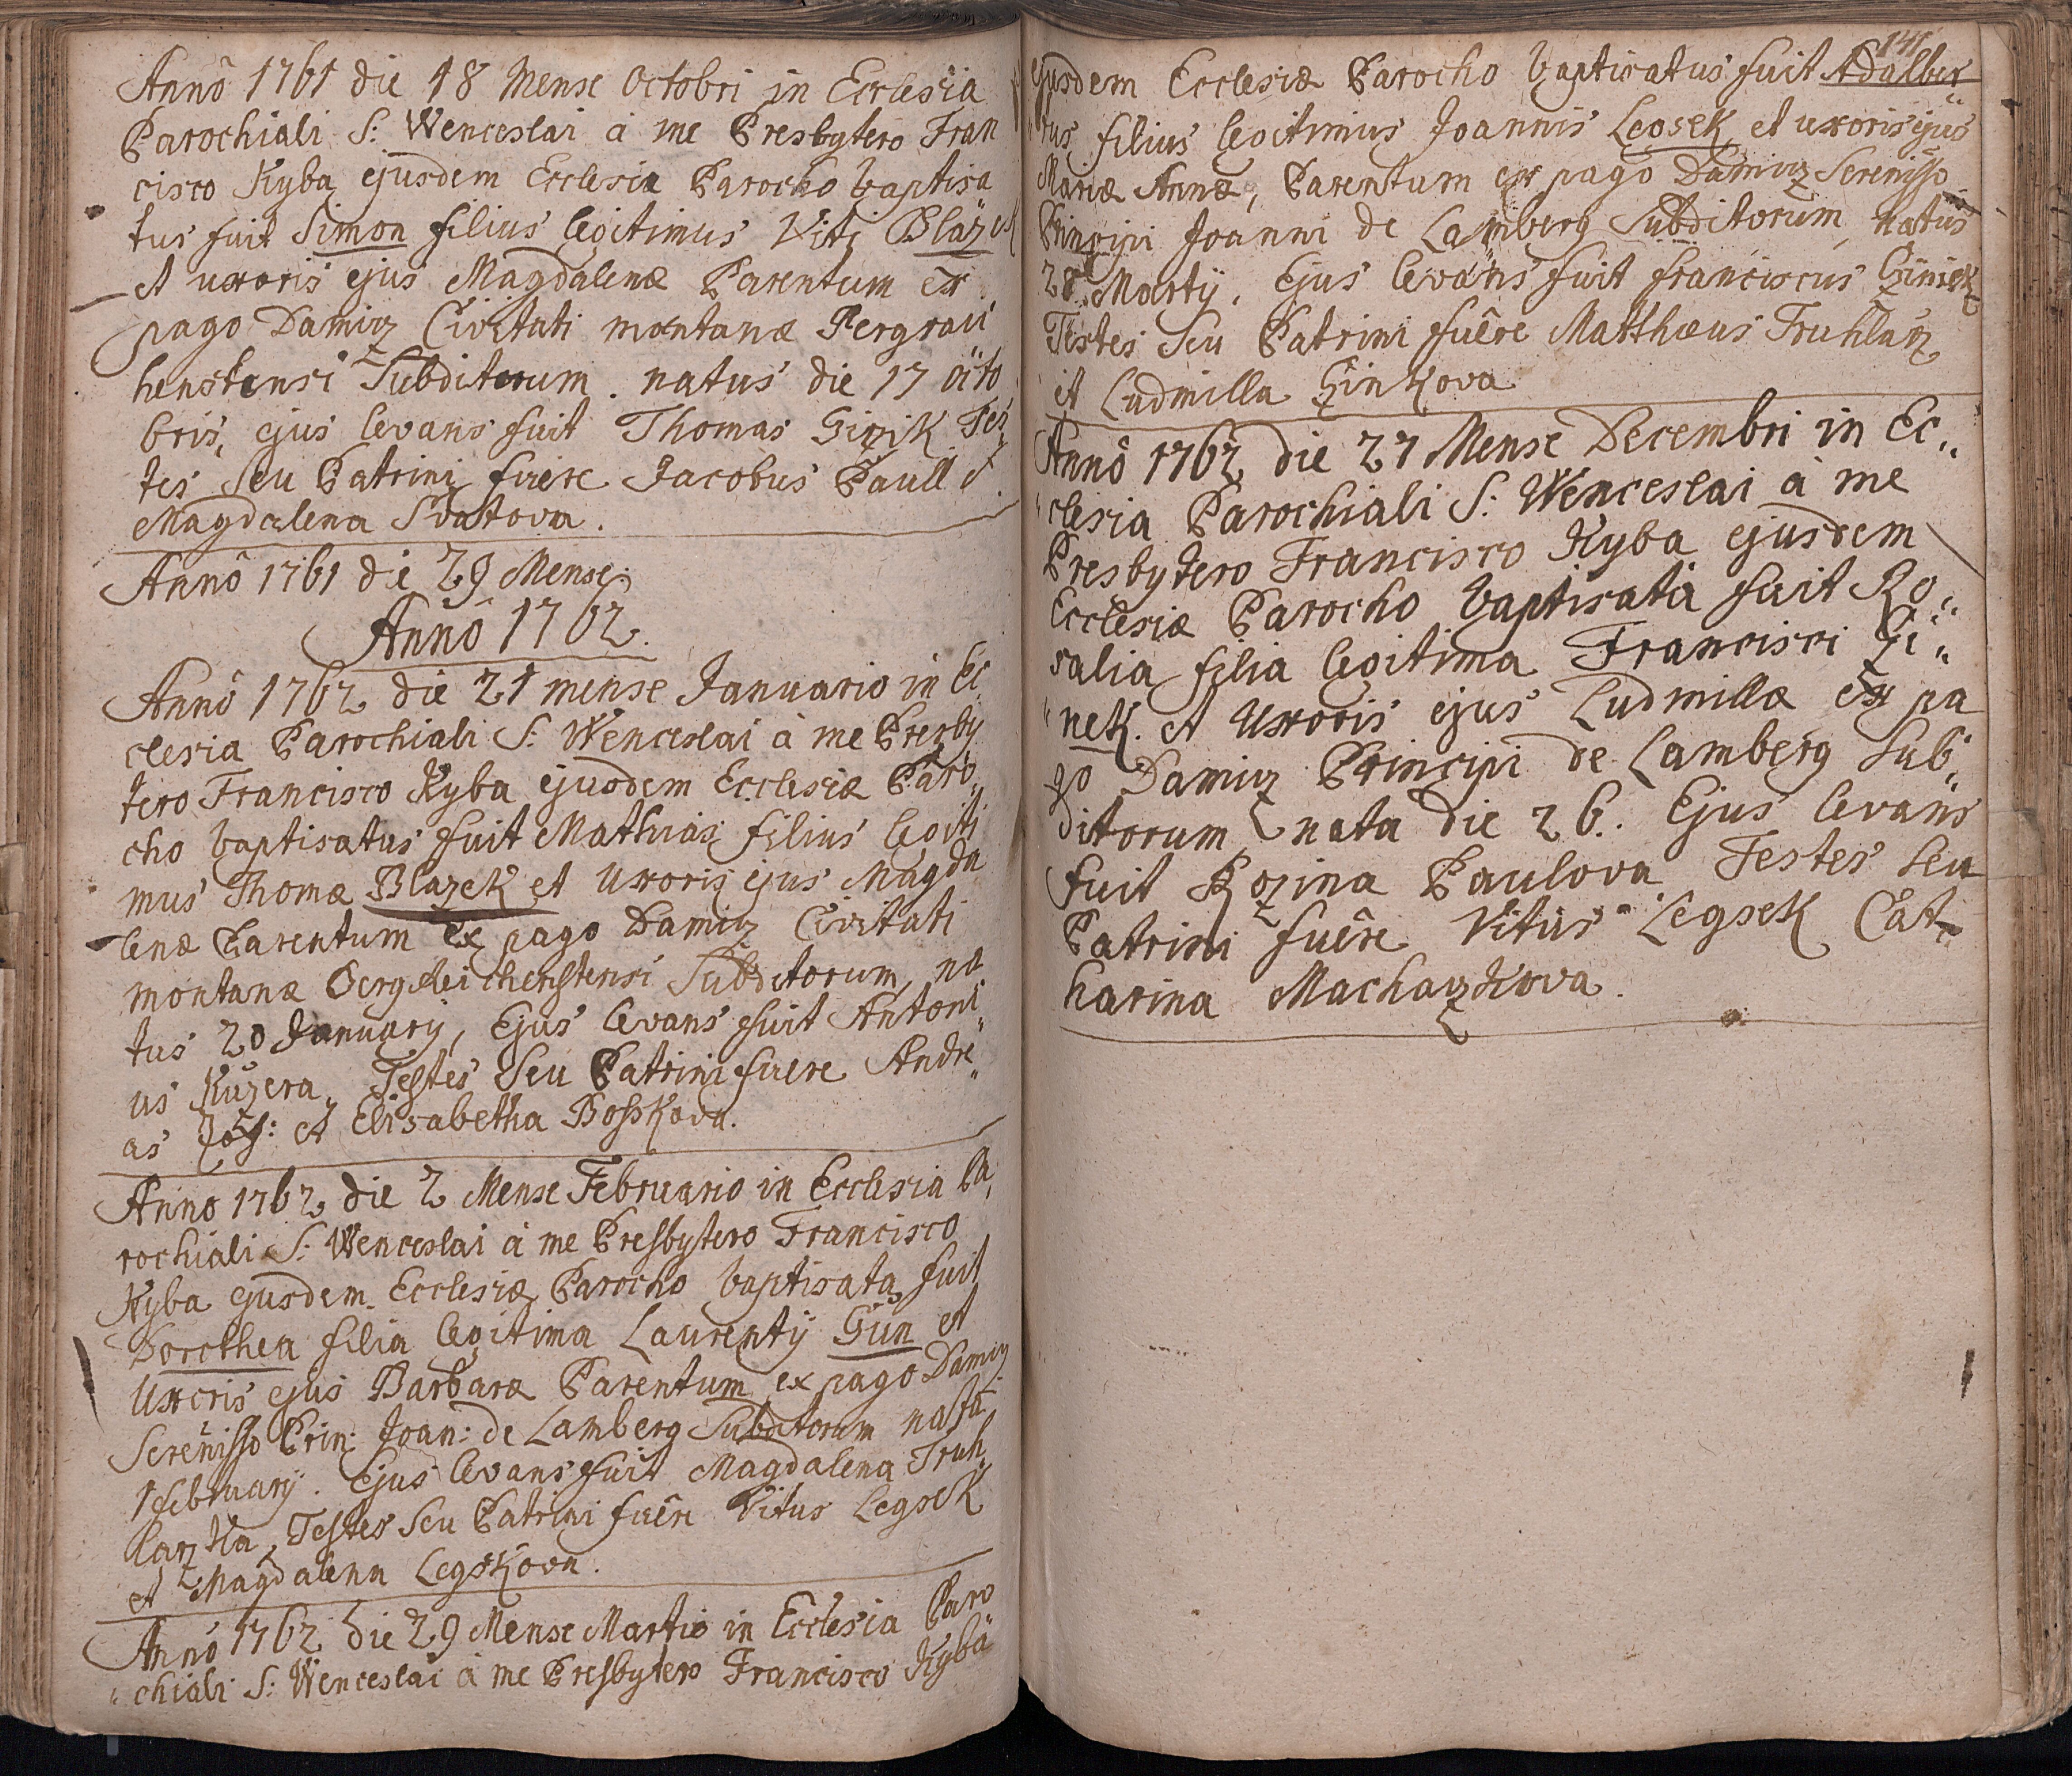 Annô 1761 die 18 Mense Octobri in Ecclesia
Parochiali S: Wenceslai à me Presbytero Fran
cisco Kyba ejusdem Ecclesiæ Parocho baptisa
tus fuit Simon filius legitimus Viti Blazek
et uxoris ejus Magdalenæ Parentum ex
pago Damicz Civitati montanæ Pergraü
henstensi Subditorum. natus die 17 octo
bris, ejus levans fuit Thomas Tes,
tes seu Patrini fuêre Jacobus Paull et
Magdalena Svatova.
Annô 1761 die 29 Mense
Annô 1762.
Annô 1762 die 21 mense Januario in Ec,
clesia Parochiali S: Wenceslai à me Presby
tero Francisco Kyba ejusdem Ecclesiæ Paro,
cho baptisatus fuit Mathias filius legiti
mus Thomæ Blazek et Uxoris ejus Magda
lenæ Parentum Ex pago Damicz Civitati
montanæ Bergreichenstensi Subditorum, na
tus 20 January, Ejus levans fuit Antoni,,
us Kuzera, Testes Seu Patrini fuere Andre,,
as et Elisabetha Bosskova.
Anno 1762 die 2 Mense Februario in Ecclesia Pa,
rochiali S: Wenceslai à me Presbytero Francisco
Kyba ejusdem Ecclesiæ Parocho baptisata fuit
Dorothea filia legitima Laurentÿ Gün et
Uxoris ejus Barbaræ Parentum ex pago Damicz
Serenisso Prin: Joan: de Lamberg Subditorum nata
1 februarÿ. Ejus levans fuit Magdalena Truh,
larzka, Testes Seu Patrini fuêre Vitus Legsek
et Magdalena Legskova.
Annô 1762 die 29 Mense Martio in Ecclesia Paro
,,chiali S: Wenceslai à me Presbytero Francisco Kyba
141
ejusdem Ecclesiæ Parocho baptisatus fuit Adalber,,
,,tus filius legitimus Joannis Legsek et uxoris ejus
Mariæ Annæ, Parentum ex pago Damicz Serenisso
Principi Joanni de Lamberg Subditorum, natus
28 Martÿ. Ejus levans fuit franciscus
Testes Seu Patrini fuêre Matthæus Truhlarz
et Ludmilla Ginkova
Annô 1762 die 27 Mense Decembri in Ec,,
,,clesia Parochiali S: Wenceslai à me
Presbytero Francisco Kyba ejusdem
Ecclesiæ Parocho baptisata fuit Ro,,
salia filia legitima Francisci Gi,,
,,nek. et Uxoris ejus Ludmillæ Ex pa
go Damicz Principi de Lamberg Sub,,
ditorum, nata die 26. Ejus levans
fuit Rozina Paulova Testes seu
Patrini fuêre Vitus Legsek Cat,,
harina Macharzkova.